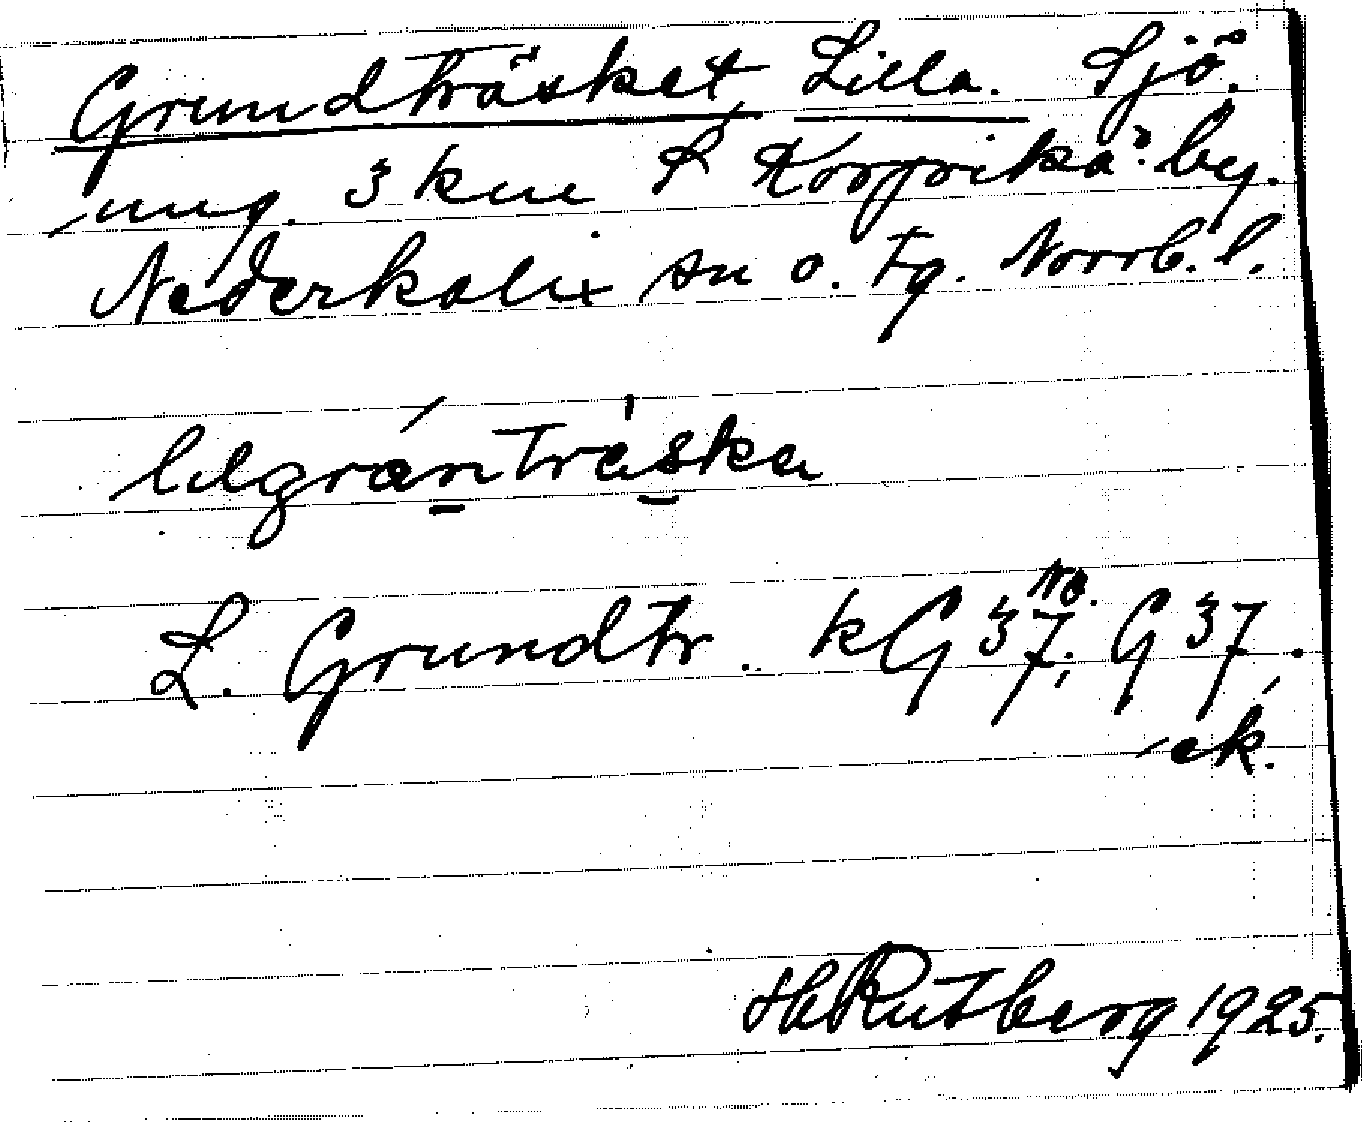 Grundträsket, Lilla. Sjö.
ung. 3 km S Korpikå by.
Nederkalix sn o. tg. Norrb. l.
lilgránträska
L. Grundtr. kG 37 NO.; G 37.
ek.
H Rutberg 1925.